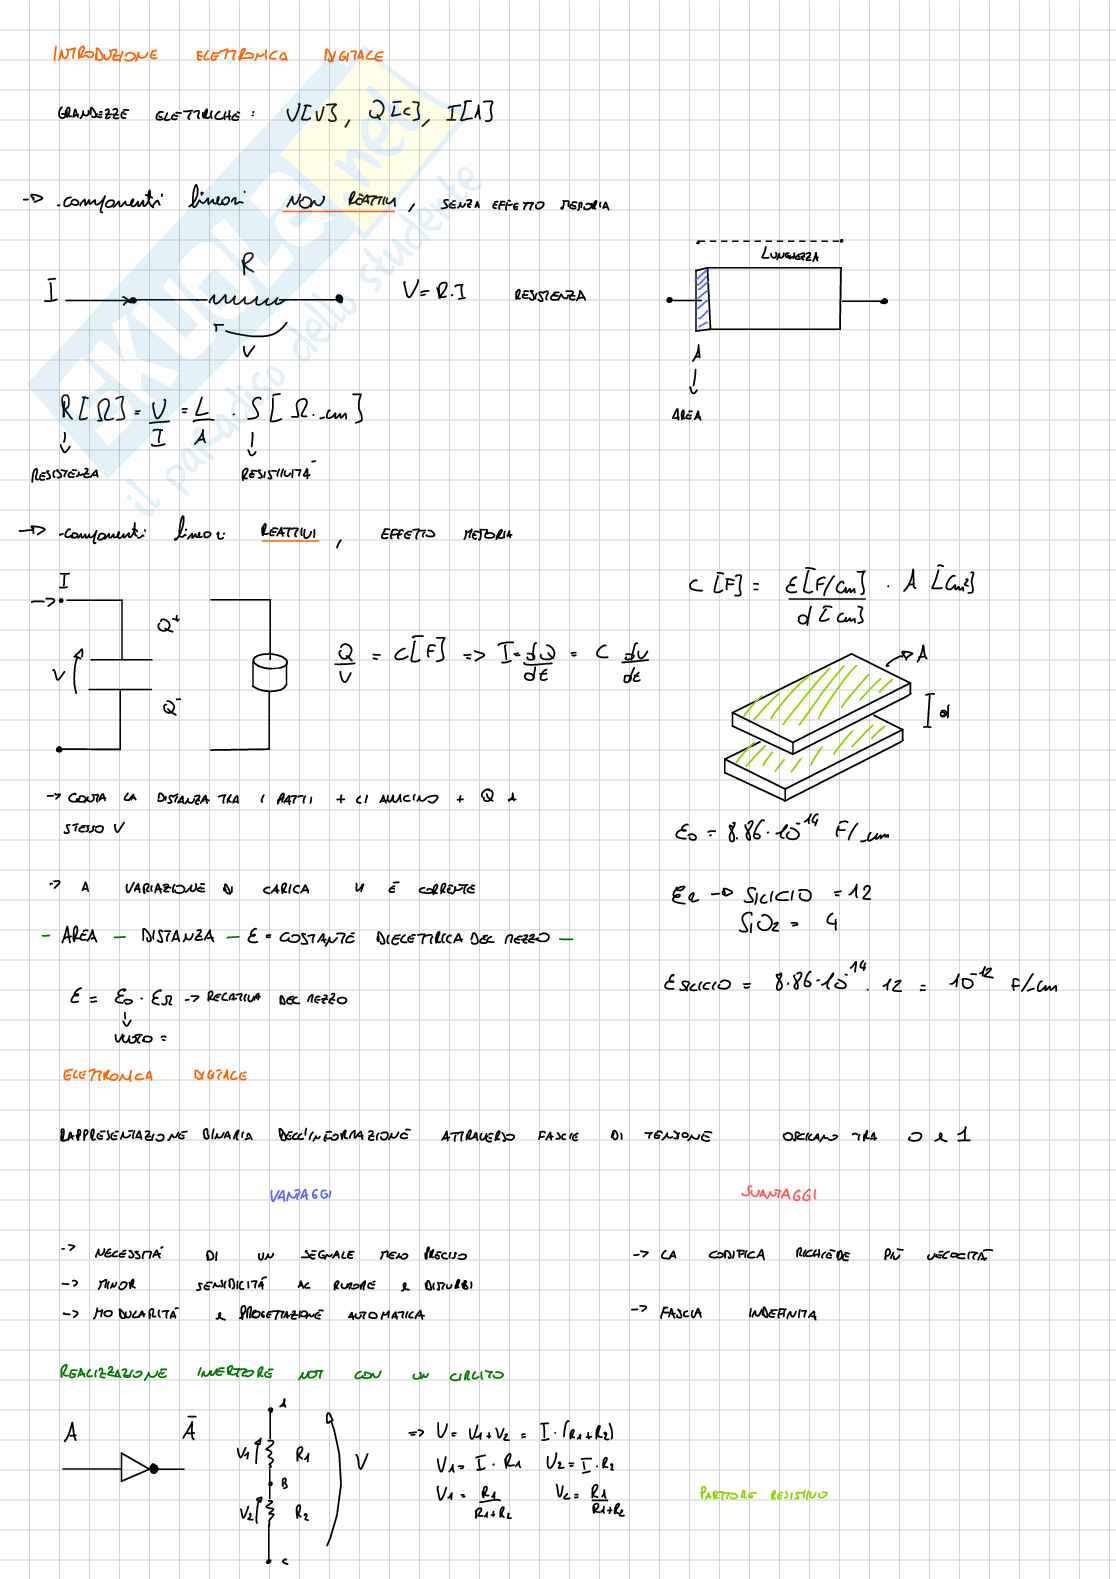 INTRODUZIONE ELETTRONICA DIGITALE
GRANDEZZE ELETTRICHE: V[V], Q[C], I[A]
→ .componenti lineari NON REATTIVI, SENZA EFFETTO MEMORIA
LUNGHEZZA
R
I
V = R.I RESISTENZA
V
A
AREA
R[Ω] = V/I = L/A · S[Ω·cm]
RESISTENZA
RESISTIVITÀ
→ .componenti lineari REATTIVI, EFFETTO MEMORIA
I
Q+
V
Q-
Q/V = C[F] => I = dQ/dt = C dV/dt
C [F] = ε[F/cm] · A [cm²]
d [cm]
A
d
→ CONTA LA DISTANZA TRA I PIATTI + CI AVVICINO + Q A
STESSO V
ε0 = 8.86·10^-14 F/cm
→ A VARIAZIONE DI CARICA VI È CORRENTE
εR → SILICIO = 12
SiO2 = 4
- AREA - DISTANZA - ε = COSTANTE DIELETTRICA DEL MEZZO -
ε SILICIO = 8.86·10^-14 · 12 = 10^-12 F/cm
ε = ε0 · εR → RELATIVA DEL MEZZO
VUOTO =
ELETTRONICA DIGITALE
RAPPRESENTAZIONE BINARIA DELL'INFORMAZIONE ATTRAVERSO FASCIE DI TENSIONE OSCILLANO TRA 0 e 1
VANTAGGI
SVANTAGGI
→ NECESSITÀ DI UN SEGNALE MENO PRECISO
→ LA CODIFICA RICHIEDE PIÙ VELOCITÀ
→ MINOR SENSIBILITÀ AL RUMORE e DISTURBI
→ MODULARITÀ e PROGETTAZIONE AUTOMATICA
→ FASCIA INDEFINITA
REALIZZAZIONE INVERTORE NOT CON UN CIRCUITO
A
Ā
A
V1
R1
B
V2
R2
C
V
=> V = V1+V2 = I·(R1+R2)
V1 = I · R1 V2 = I·R2
V1 = R1/R1+R2 V2 = R1/R1+R2
PARTITORE RESISTIVO
SKUOLA.net
il paradiso dello studente